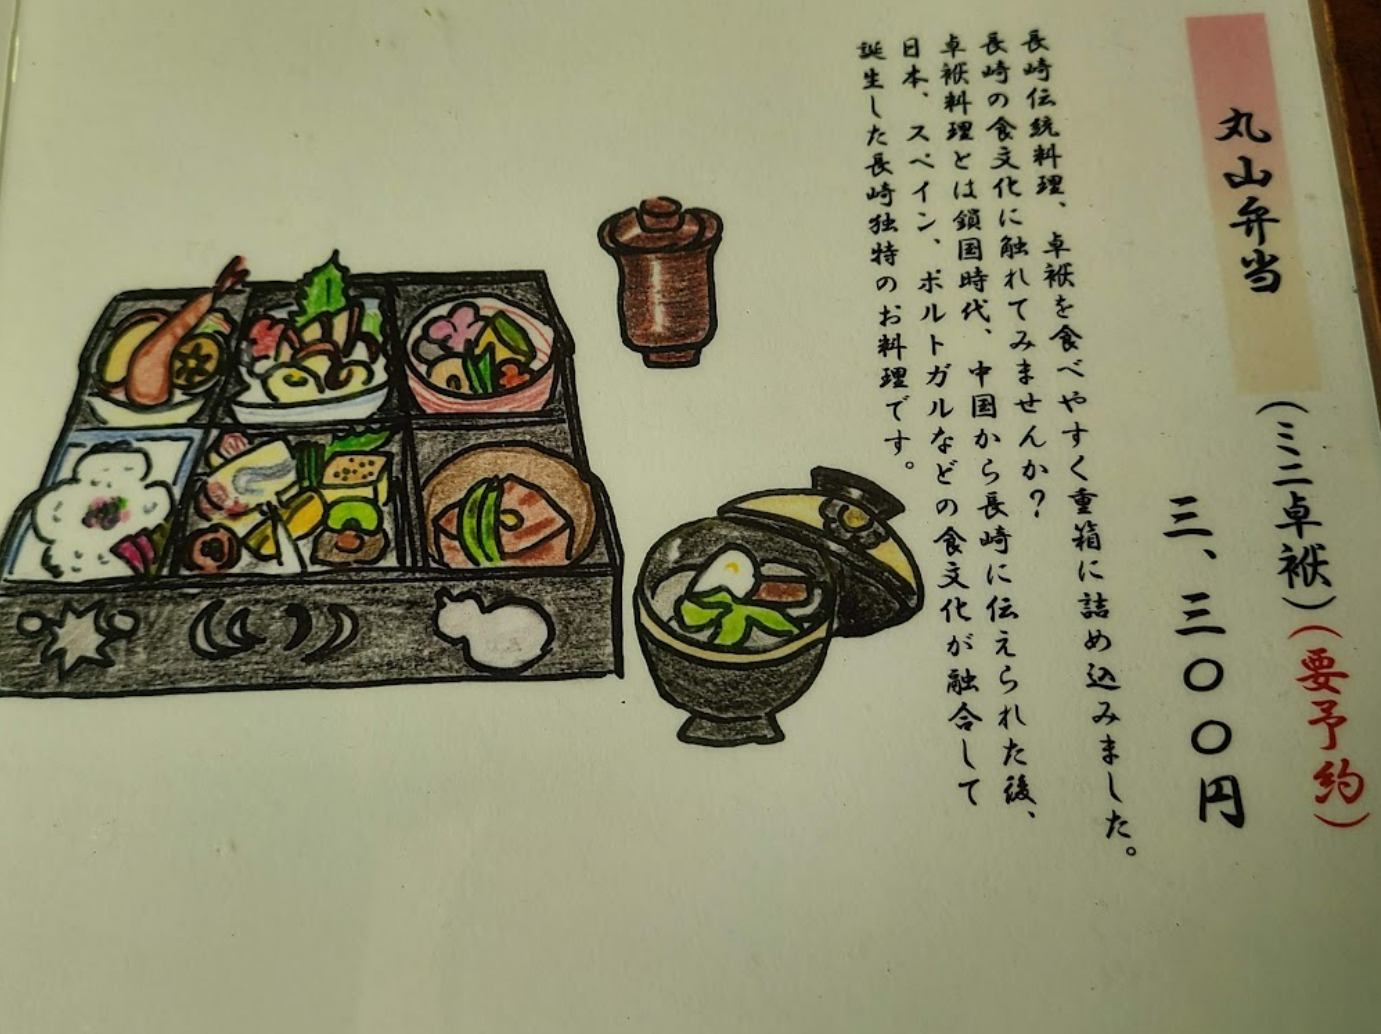 丸山弁当（ミニ卓袱）（要予約）
三、三〇〇円
長崎伝統料理、卓袱を食べやすく重箱に詰め込みました。
長崎の食文化に触れてみませんか？
卓袱料理とは鎖国時代、中国から長崎に伝えられた後、
日本、スペイン、ポルトガルなどの食文化が融合して
誕生した長崎独特のお料理です。